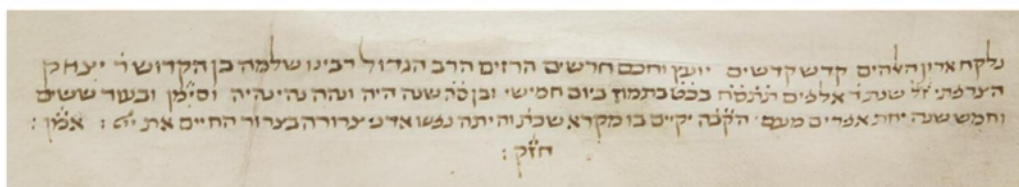 נלקח ארון האלהים קדש קדשים יועץ וחכם חרשים הרזים הרב הגדול רבינו שלמה בן הקדוש ר' יצחק
הצרפתי זל שנת ד' אלפים תתסה בכט בתמוז ביום חמישי ובן סה שנה היה וזה נהי נהיה וסימן ובעוד ששים
וחמש שנה יחת אפרים מעם הקבה יקיים בו מקרא שכת והיתה נפש אדני צרורה בצרור החיים את יי : אמן :
חזק :